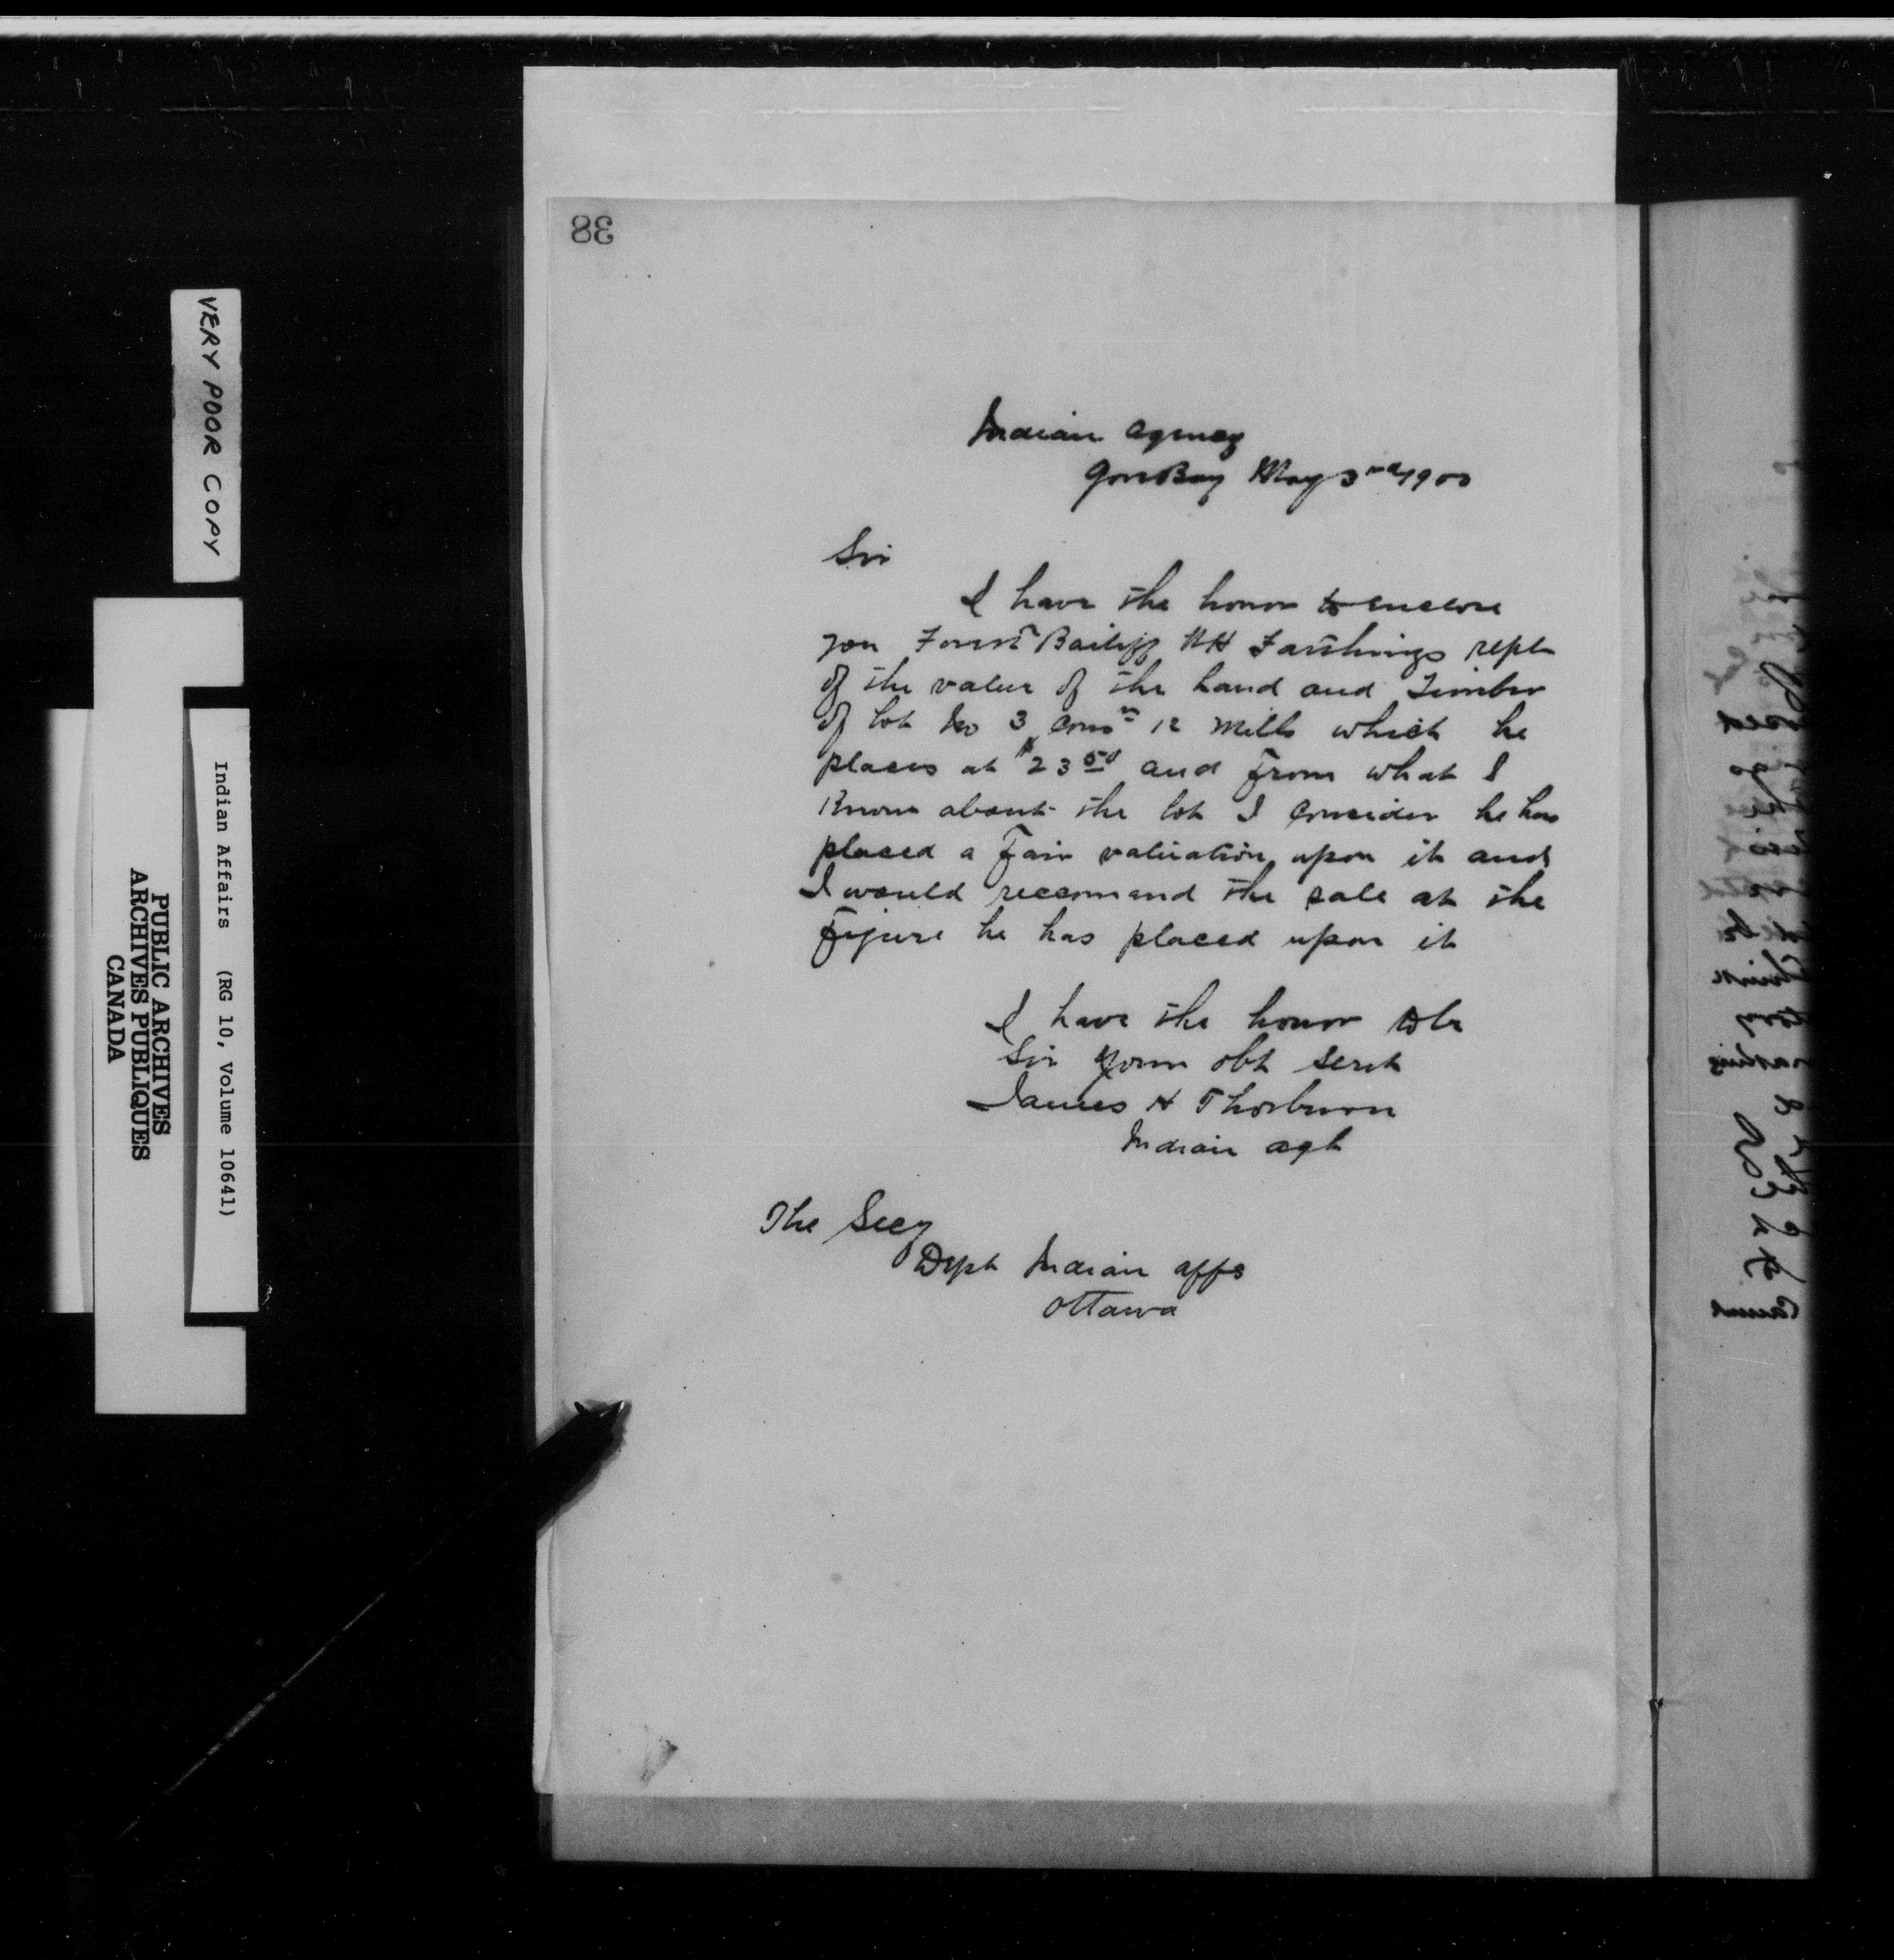 38
Indian Agency
Gore Bay May 3rd 1900
Sir
I have the honor to enclose
you Forest Bailiff Farthings rept
of the value of the Land and Timber
of Lot No 3 Conn 12 Mills which he
places at $23 50 and from what I
Know about the lot I Consider he has
placed a fair valuation upon it and
I would reccommend the sale at the
figure he has placed upon it
I have the honor to be
Sir Your obt Servt
James H Thorburn
Indian agt
The Secy
Dept Indian affs
Ottawa
VERY POOR COPY
Indian Affairs (RG 10, Volume 10641)
PUBLIC ARCHIVES
ARCHIVES PUBLIQUES
CANADA